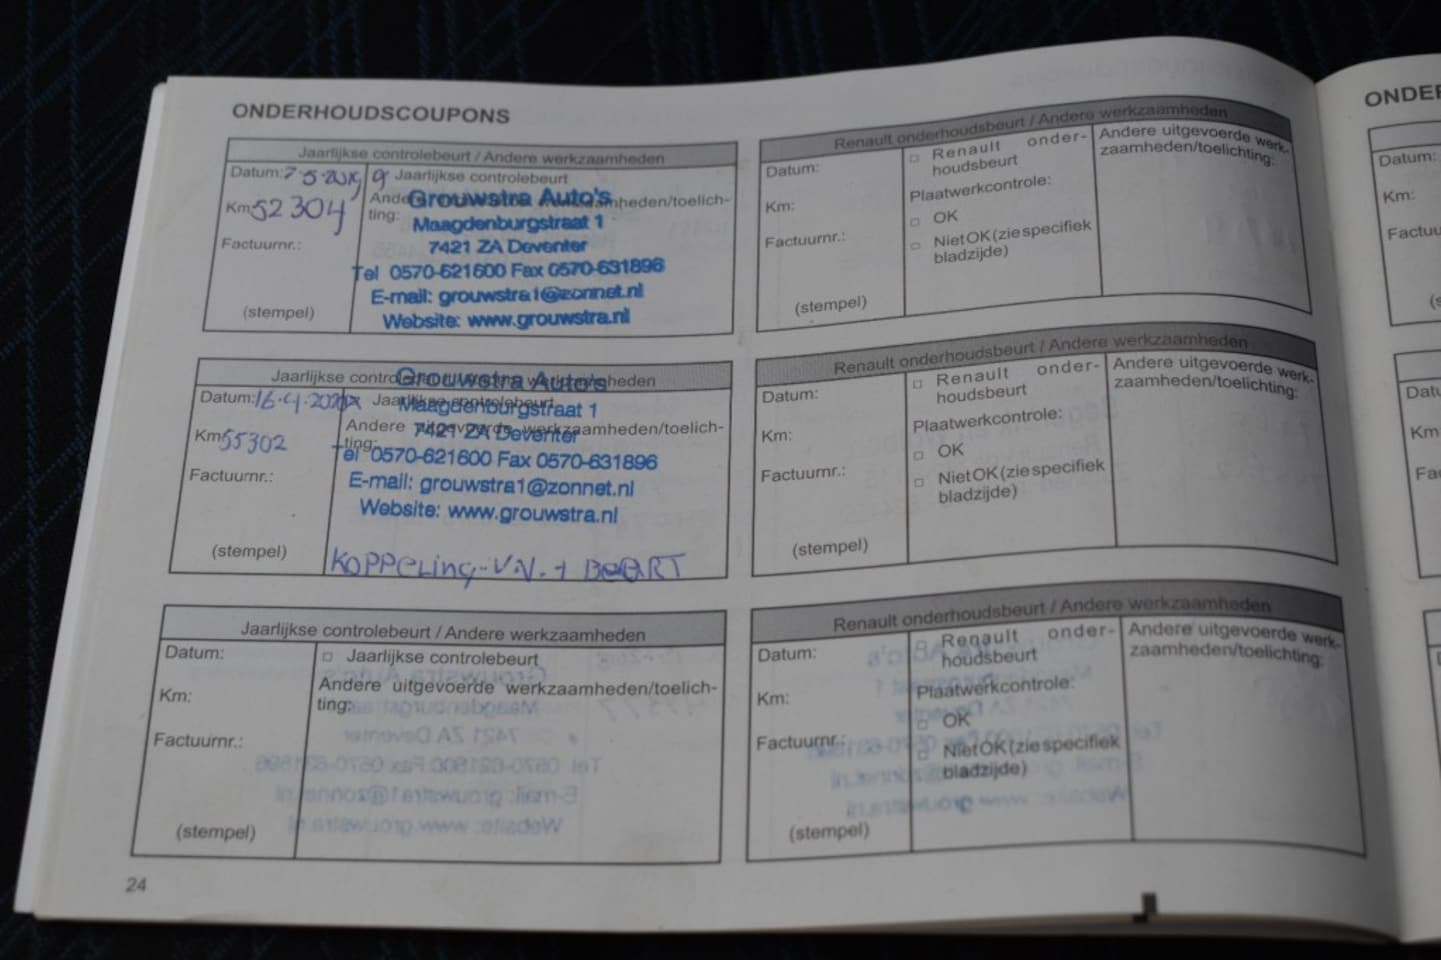 ONDERHOUDSCOUPONS
Jaarlijkse controlebeurt / Andere werkzaamheden
Datum: 7-5-2019 Jaarlijkse controlebeurt
Km 52304
Andere werkzaamheden/toelich-
ting:
Factuurnr.:
(stempel)
Grouwstra Auto's
Maagdenburgstraat 1
7421 ZA Deventer
Tel 0570-621600 Fax 0570-631896
E-mail: grouwstra1@zonnet.nl
Website: www.grouwstra.nl
Renault onderhoudsbeurt / Andere werkzaamheden
Datum:
Km:
Factuurnr.:
(stempel)
□ Renault onder-
houdsbeurt
Plaatwerkcontrole:
□ OK
□ Niet OK (zie specifiek
bladzijde)
Andere uitgevoerde werk-
zaamheden/toelichting:
Jaarlijkse controlebeurt / Andere werkzaamheden
Datum: 16-4-2020 Jaarlijkse controlebeurt
Km 55302
Andere uitgevoerde werkzaamheden/toelich-
ting:
Factuurnr.:
(stempel)
Grouwstra Auto's
Maagdenburgstraat 1
7421 ZA Deventer
Tel 0570-621600 Fax 0570-631896
E-mail: grouwstra1@zonnet.nl
Website: www.grouwstra.nl
KOPPELING-V.N. + BEURT
Renault onderhoudsbeurt / Andere werkzaamheden
Datum:
Km:
Factuurnr.:
(stempel)
□ Renault onder-
houdsbeurt
Plaatwerkcontrole:
□ OK
□ Niet OK (zie specifiek
bladzijde)
Andere uitgevoerde werk-
zaamheden/toelichting:
Jaarlijkse controlebeurt / Andere werkzaamheden
Datum:
Km:
Factuurnr.:
(stempel)
□ Jaarlijkse controlebeurt
Andere uitgevoerde werkzaamheden/toelich-
ting:
Renault onderhoudsbeurt / Andere werkzaamheden
Datum:
Km:
Factuurnr.:
(stempel)
□ Renault onder-
houdsbeurt
Plaatwerkcontrole:
□ OK
□ Niet OK (zie specifiek
bladzijde)
Andere uitgevoerde werk-
zaamheden/toelichting:
24
ONDER
Datum:
Km:
Factuu
Datu
Km
Fa